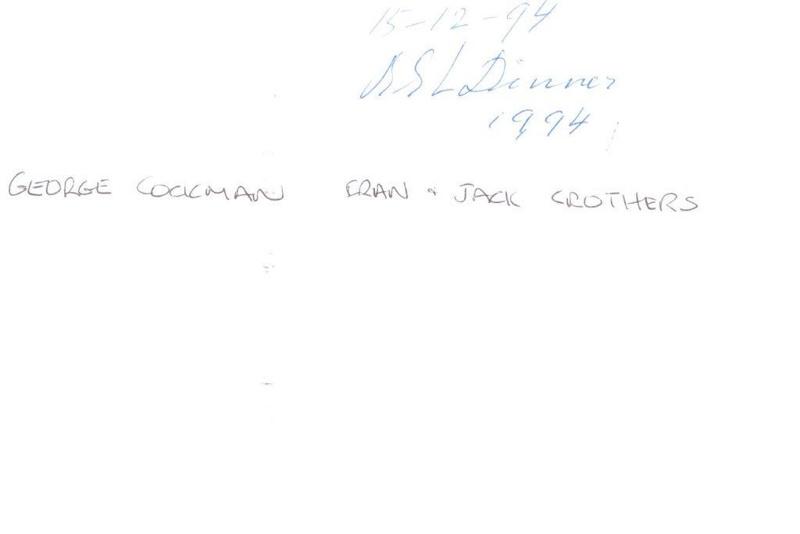 15-12-94
RSL Dinner
1994
GEORGE COCKMAN FRAN & JACK CROTHERS